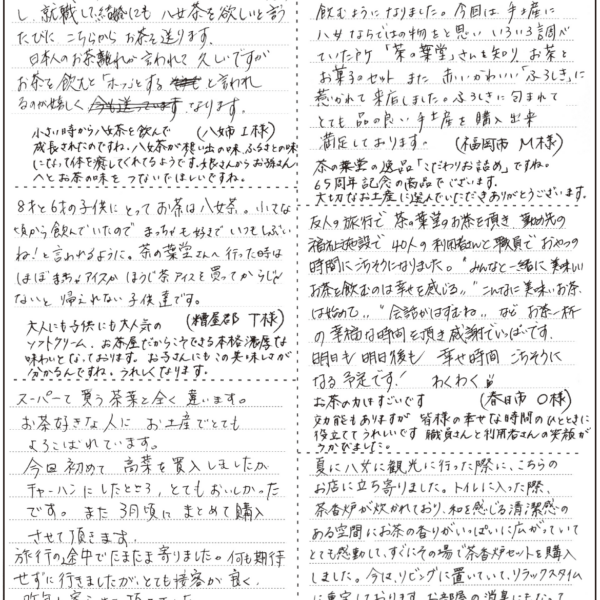 し、就職して結婚にも 八女茶を欲しいと言う
たびに こちらから お茶を送ります。
日本人のお茶離れが言われて 久しいですが
お茶を飲むと「ホッ」とする と言われ
るのが嬉しく 今も送ってます なります。
(八姉 I様)
小さい時から八女茶を飲んで
成長されたのですね。八女茶が想い出の味、ふるさとの味
になって体を癒してくれてるようです。お母さんからお孫さん
へとお茶の味を つないでほしいですね。
8才と6才の子供にとってお茶は八女茶。小さな
頃から飲んでいたので まっちゃも好きでいつもしぶい
ね!と言われるように。茶の葉堂さんへ行った時は
ほぼまっちゃアイスか ほうじ茶アイスを買ってからじゃ
ないと 帰えれない子供達です。
(糟屋郡 T様)
大人にも子供にも大人気の
ソフトクリーム、お茶屋だからこそできる本格濃厚な
味わいとなっております。お子さんにもこの美味しさが
分かるんですね。うれしくなります。
スーパーで買う茶葉と全く違います。
お茶好きな人に お土産でとても
よろこばれています。
今回初めて 高菜を買入しましたが
チャーハンにしたところ、とてもおいしかった
です。また3月頃に まとめて購入
させて頂きます。
旅行の途中でたまたま寄りました。何も期待
せずに行きましたが、とても接客が良く、
飲むようになりました。今回は 手土産に
八女ならではの物をと思い いろいろ調べ
ていた所「茶の葉堂」さんを知り お茶と
お菓子のセット また 赤いかわいい「ふろしき」に
惹かれて来店しました。ふろしきに包まれて
とても 品の良い 手土産を 購入出来
満足しております。 (福岡市 M様)
茶の葉堂の逸品「こだわりお詰め」ですね。
65周年記念の商品でございます。
大切なお土産に選んでいただきありがとうございます。
友人の旅行で 茶の葉堂のお茶を頂き 勤め先の
福祉施設で 40人の利用者さんと職員で おやつの
時間にごちそうになりました。“みんなと一緒に美味しい
お茶を飲むのは幸せを感じる。”“こんなに美味いお茶
は始めて。”“会話がはずむね。”など お茶一杯
の幸福な時間を頂き感謝でいっぱいです。
明日も 明日後も 幸せ時間 ごちそうに
なる予定です! わくわく
(春日市 O様)
お茶の力はすごいです
効能もありますが 皆様の幸せな時間のひとときに
役立ててうれしいです 職員さんと利用者さんの笑顔が
うかびました。
夏に八女に観光に行った際に、こちらの
お店に立ち寄りました。トイレに入った際、
茶香炉が炊かれており、和を感じる清潔感の
ある空間にお茶の香りがいっぱいに広がっていて
とても感動して、すぐにその場で茶香炉セットを購入
しました。今は、リビングに置いていて、リラックスタイム
に重宝しております。お部屋の消臭にもなって